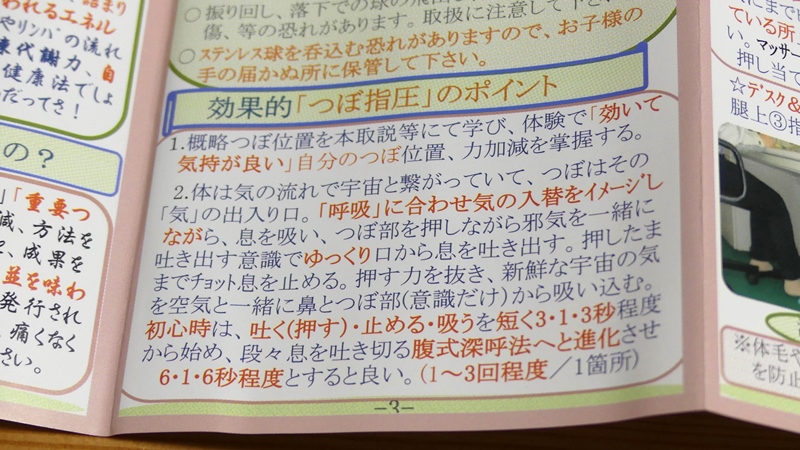 われるエネル
やリンパの流れ
代謝力、自
健康法でしょ
だってさ!
の?
「重要つ
減、方法を
、成果を
並を味わ
発行され
、痛くなく
さい。
○振り回し、落下での球の飛出し
傷、等の恐れがあります。取扱に注意して下さい
○ステンレス球を呑込む恐れがありますので、お子様の
手の届かぬ所に保管して下さい。
効果的「つぼ指圧」のポイント
1.概略つぼ位置を本取説等にて学び、体験で「効いて
気持が良い」自分のつぼ位置、力加減を掌握する。
2.体は気の流れで宇宙と繋がっていて、つぼはその
「気」の出入り口。「呼吸」に合わせ気の入替をイメージし
ながら、息を吸い、つぼ部を押しながら邪気を一緒に
吐き出す意識でゆっくり口から息を吐き出す。押したま
までチョット息を止める。押す力を抜き、新鮮な宇宙の気
を空気と一緒に鼻とつぼ部(意識だけ)から吸い込む。
初心時は、吐く(押す)・止める・吸うを短く3・1・3秒程度
から始め、段々息を吐き切る腹式深呼法へと進化させ
6・1・6秒程度とすると良い。(1～3回程度/1箇所)
-3-
にまで
ている所
い。マッサー
押し当て
☆デスク&
腿上③指
※体毛や
を防止